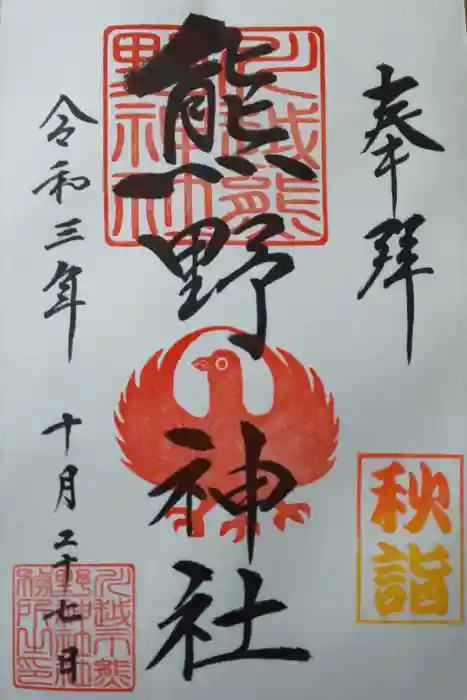 奉拝
川越熊野神社
熊野神社
秋詣
令和三年 十月二十七日